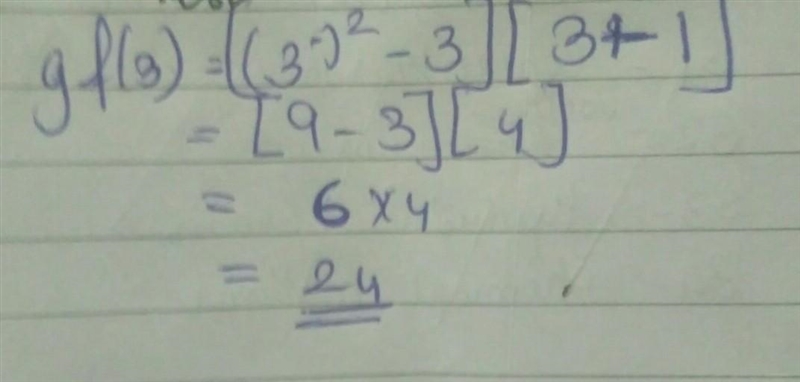 gf(3) = [(3)² - 3][3+1]
= [9 - 3][4]
= 6 x 4
= 24